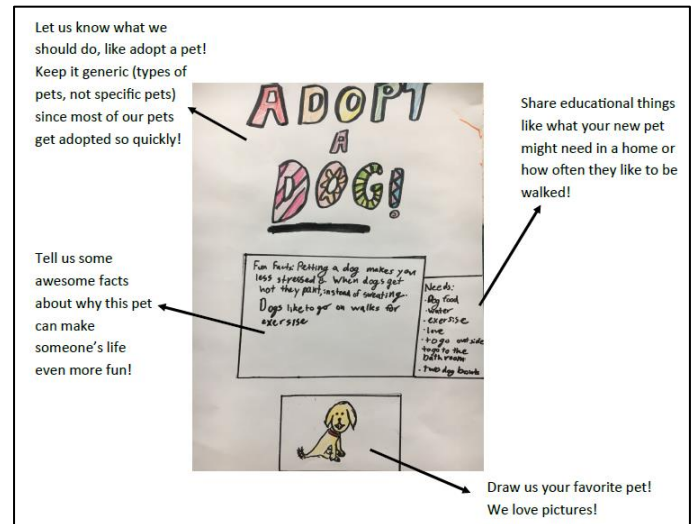 Let us know what we
should do, like adopt a pet!
Keep it generic (types of
pets, not specific pets)
since most of our pets
get adopted so quickly!
ADOPT
A
DOG!
Share educational things
like what your new pet
might need in a home or
how often they like to be
walked!
Tell us some
awesome facts
about why this pet
can make
someone's life
even more fun!
Fun Facts: Petting a dog makes you
less stressed & when dogs get
hot they pant, instead of sweating.
Dogs like to go on walks for
exersise
Needs:
• Dog food
• water
• exersise
• love
• to go outside
to go to the
bathroom
• two dog bowls
Draw us your favorite pet!
We love pictures!